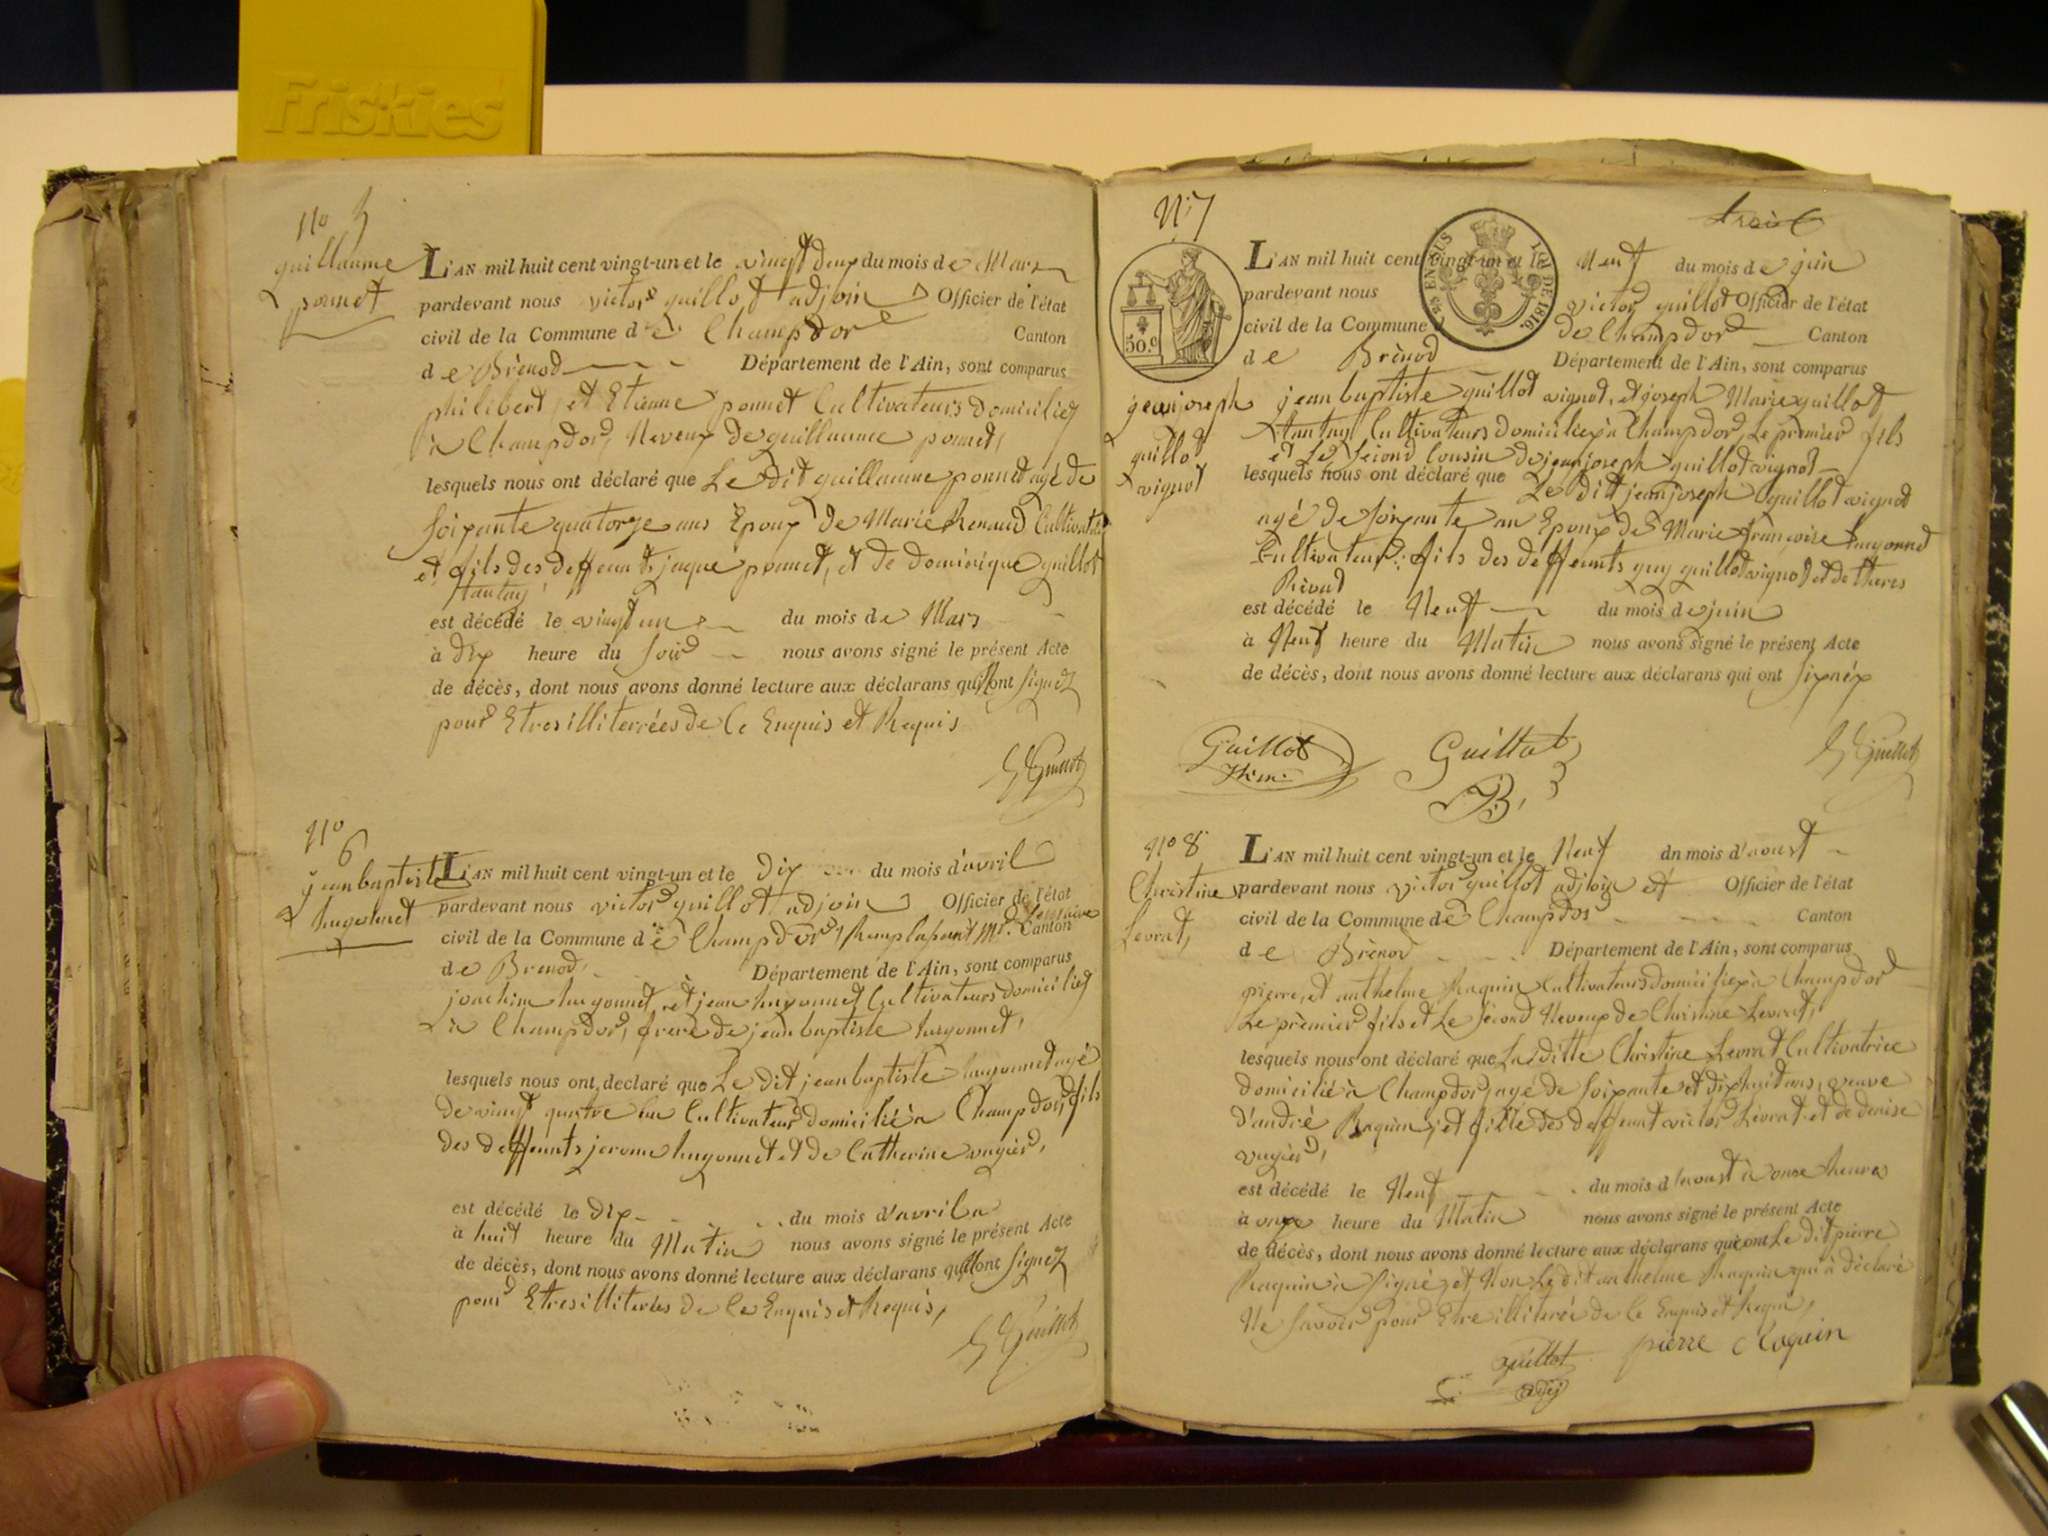 Friskies
No 5
guillaume
ponnet
L'AN mil huit cent vingt-un et le vingt deux du mois de Mars
pardevant nous victor guillot adjoin Officier de l'état
civil de la Commune de Champdor Canton
de Brénod Département de l'Ain, sont comparus
philibert, et Etienne ponnet Cultivateurs domiciliez
à Champdor, Neveux de guillaume ponnet,
lesquels nous ont déclaré que Le dit guillaume ponnet agé de
soixante quatorze ans Epoux de Marie Renaud Cultivateur
et fils des deffeunts jaque ponnet, et de dominique guillot
tantay
est décédé le vingt un du mois de Mars
à dix heure du soir nous avons signé le présent Acte
de décès, dont nous avons donné lecture aux déclarans qui ont signez
pour Etres illiterrées de Ce Enquis et Requis
Guillot
No 6
jean baptiste
hugonnet
L'AN mil huit cent vingt-un et le dix du mois d'avril
pardevant nous victor guillot adjoin Officier de l'état
civil de la Commune de Champdor, Remplasant Mr. Le maire Canton
de Brenod, Département de l'Ain, sont comparus
joachim hugonnet, et jean hugonnet Cultivateurs domiciliez
à Champdor, frere de jean baptiste hugonnet,
lesquels nous ont déclaré que Le dit jean baptiste hugonnet agé
de vingt quatre an Cultivateur domicilié à Champdor, fils
des deffeunts jerome hugonnet et de Catherine vugier,
est décédé le dix du mois d'avril a
à huit heure du Matin nous avons signé le présent Acte
de décès, dont nous avons donné lecture aux déclarans qui ont signez
pour Etres illiterées de Ce Enquis et Requis,
Guillot
N: 7
trois
50.c
EN SUS
LOI DE 1816.
jean joseph
guillot
vignot
L'AN mil huit cent vingt-un et le Neuf du mois de juin
pardevant nous victor guillot Officier de l'état
civil de la Commune de Champdor Canton
de Brénod Département de l'Ain, sont comparus
jean baptiste guillot vignot, et joseph Marie guillot
tantay Cultivateurs domiciliez à Champdor, Le premier fils
et Le second Cousin de jean joseph guillot vignot
lesquels nous ont déclaré que Le dit jean joseph guillot vignot
agé de soixante an Epoux de Marie françoise hugonnet
Cultivateur: fils des deffeunts guy guillot vignot et de theres
Rivad
est décédé le Neuf du mois de juin
à Neuf heure du Matin nous avons signé le présent Acte
de décès, dont nous avons donné lecture aux déclarans qui ont signéz
Guillot
Guillot
JB,
Guillot
No 8
Christine
Levrat,
L'AN mil huit cent vingt-un et le Neuf du mois d'aoust
pardevant nous victor guillot adjoin et Officier de l'état
civil de la Commune de Champdor Canton
de Brénod Département de l'Ain, sont comparus
pierre, et anthelme Raquin Cultivateurs domiciliez à Champdor
Le premier fils et Le second Neveux de Christine Levrat,
lesquels nous ont déclaré que Laditte Christine Levrat Cultivatrice
domicilié à Champdor, agé de soixante et dix huit ans, veuve
d'andré Raquin, et fille des deffeunt victor Levrat et de denise
vugier,
est décédé le Neuf du mois d'aoust à onze heure
à onze heure du Matin nous avons signé le présent Acte
de décès, dont nous avons donné lecture aux déclarans qui ont Le dit pierre
Raquin à signéz et Non Le dit anthelme Raquin qui à déclaré
Ne savoir pour Etre illiterée de Ce Enquis et Requi,
guillot pierre Raquin
adj